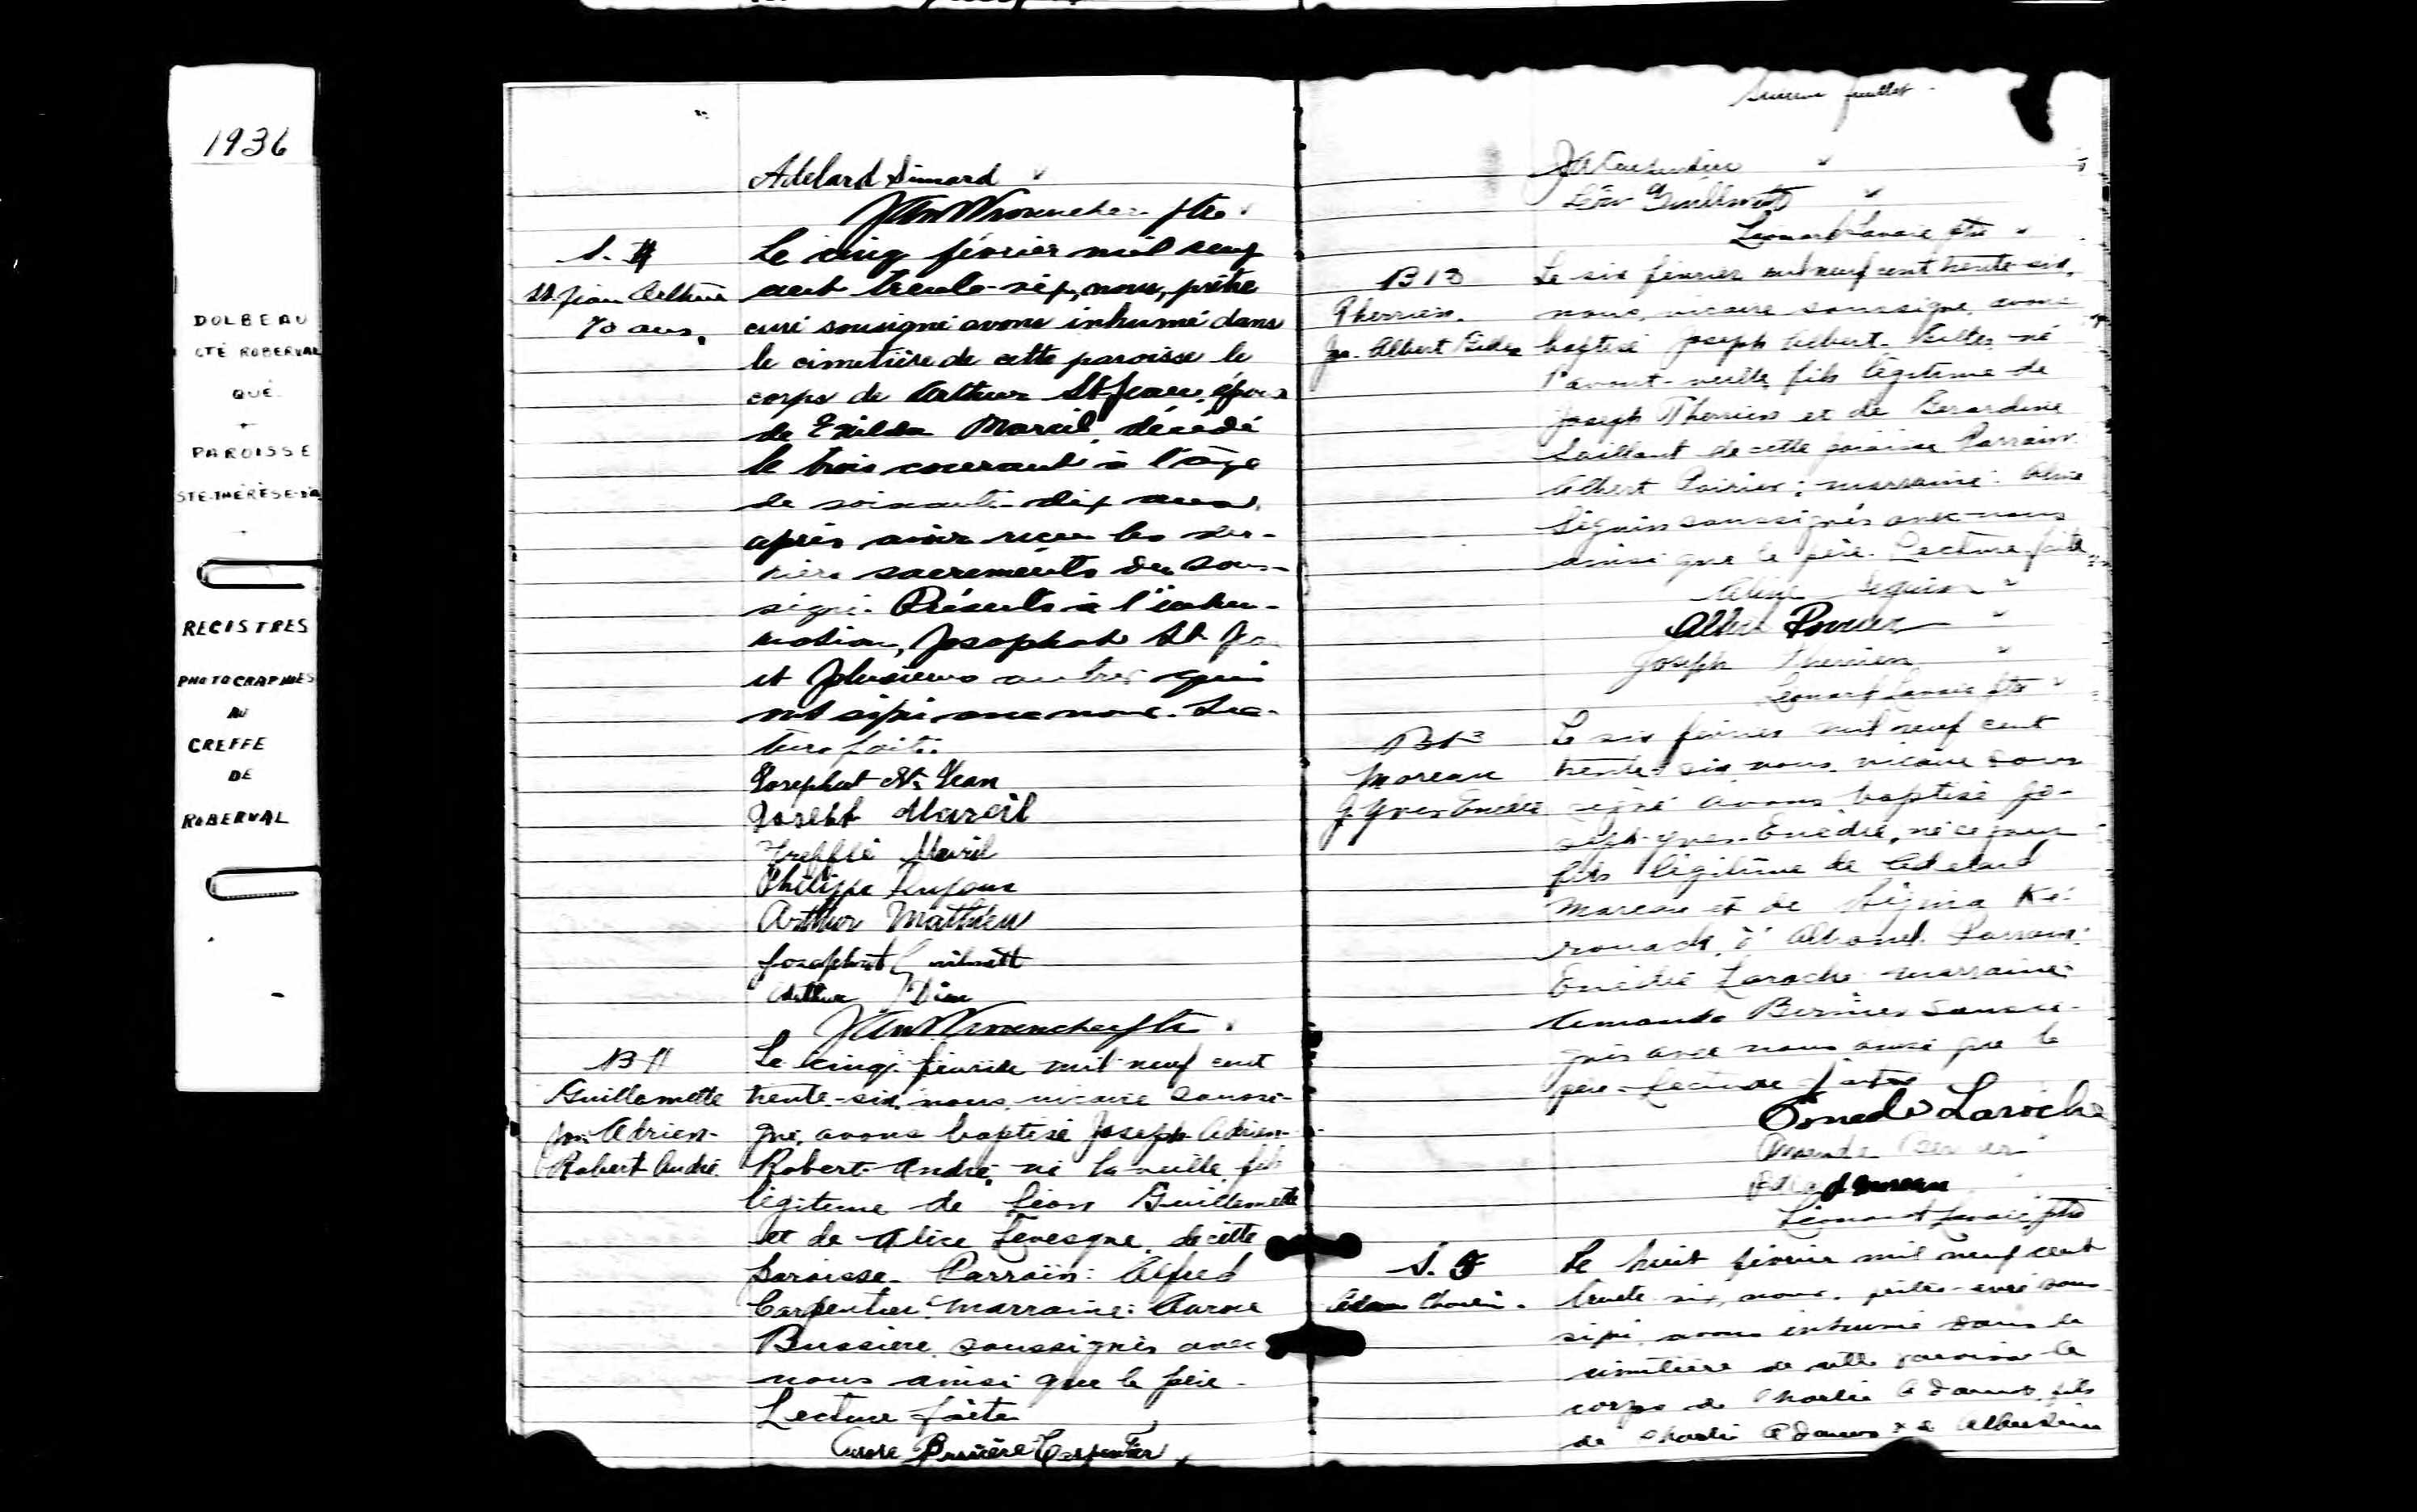 1936
DOLBEAU
CTÉ ROBERVAL
QUÉ.
PAROISSE
STE-THÉRÈSE-D'A
REGISTRES
PHOTOGRAPHIES
AU
GREFFE
DE
ROBERVAL
Adelard Simard
ptre
S. 4
St. Jean Arthur
70 ans.
Le cinq février mil neuf
cent trente-six, nous, prêtre
curé sousigné avons inhumé dans
le cimetière de cette paroisse le
corps de Arthur St-Jean, époux
de Exilda Mareil, décédé
le trois courant à l'âge
de soixante-dix ans,
après avoir reçu les der-
niers sacrements du sous-
signé. Présents à l'inhu-
mation, Josaphat St-Jea
et plusieurs autres qui
ont signé avec nous. Lec-
ture faite.
Josephat St. Jean
Joseph Mareil
Trefflé Mareil
Philippe Dufour
Arthur Matthieu
Josaphat
Arthur
ptre
B 11
Guillemette
Jos. Adrien-
Robert André
Le cinq février mil neuf cent
trente-six, nous, vicaire soussi-
gné, avons baptisé Joseph-Adrien-
Robert-André, né la veille, fils
légitime de Léon Guillemette
et de Alice Levesque, de cette
paroisse. Parrain: Alfred
Carpentier. Marraine: Aurore
Bussière, soussignés avec
nous ainsi que le père.
Lecture faite
Aurore Bussière Carpentier
feuillet
Carpentier
Léon Guillemette
Léonard Lavoie ptre
B 13
Therrien.
Jos. Albert
Le six février mil neuf cent trente-six,
nous, vicaire soussigné, avons
baptisé Joseph Albert né
l'avant-veille, fils légitime de
Joseph Therrien et de Bernardine
Saillant de cette paroisse. Parrain:
Albert Poirier; marraine: Aline
Séguin soussignés avec nous
ainsi que le père. Lecture faite
Aline Seguin
Albert Poirier
Joseph Therrien
Léonard Lavoie ptre
Moreau
J. Yves
Le six février mil neuf cent
trente-six, nous, vicaire sous
signé avons baptisé Jo-
seph-Yves né ce jour
fils légitime de Adelard
Moreau et de Régina Ké-
rouack, d'Albanel. Parrain:
Laroche marraine:
Amanda Bernier soussi-
gnés avec nous ainsi que le
père. Lecture faite
Laroche
Amanda Bernier
Moreau
Léonard Lavoie ptre
S. 5
Adams Charlie.
Le huit février mil neuf cent
trente-six, nous, prêtre-curé sous-
signé, avons inhumé dans le
cimetière de cette paroisse le
corps de Charlie Adams, fils
de Charlie Adams & de Albertine